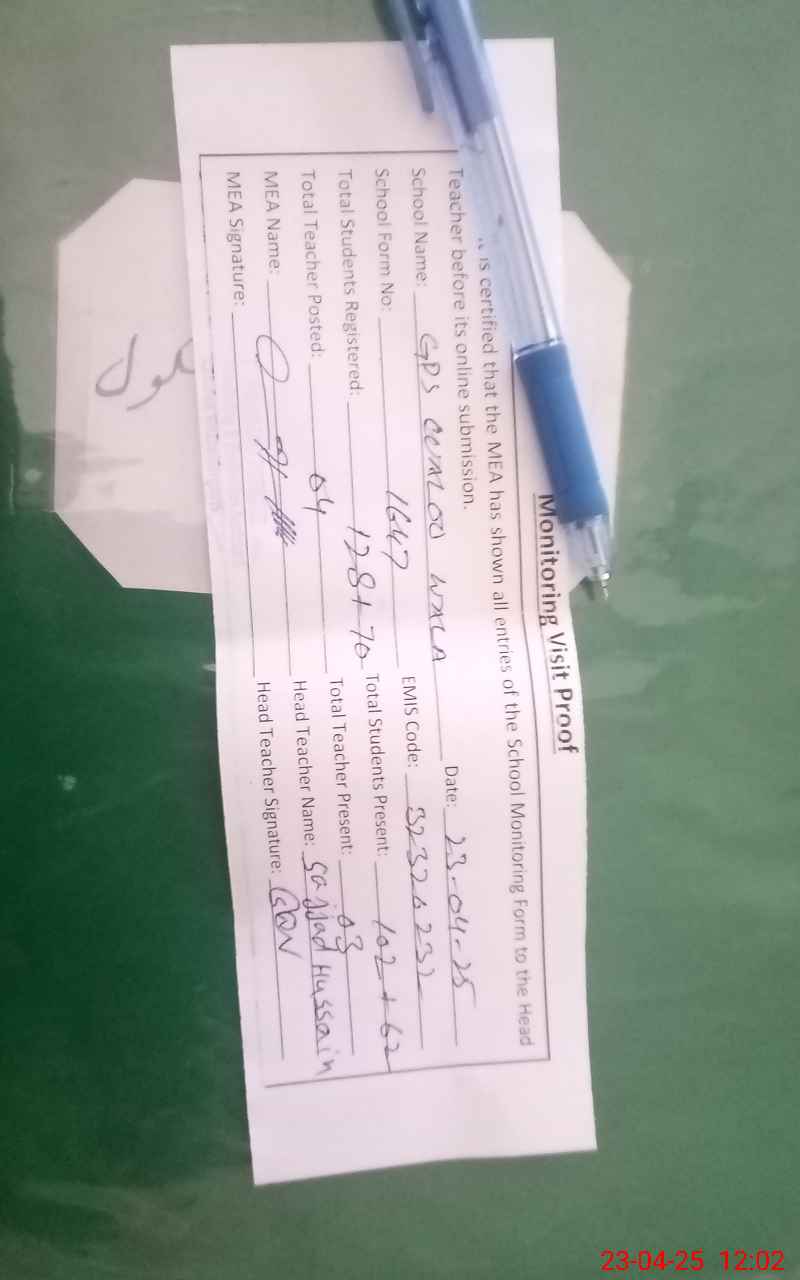 Monitoring Visit Proof
is certified that the MEA has shown all entries of the School Monitoring Form to the Head
Teacher before its online submission.
School Name: GPS WALA Date: 23-04-25
School Form No: 1647 EMIS Code: 32320232
Total Students Registered: 128+70 Total Students Present: 102+62
Total Teacher Posted: 04 Total Teacher Present: 03
MEA Name: Head Teacher Name: Sajjad Hussain
MEA Signature: Head Teacher Signature:
23-04-25 12:02